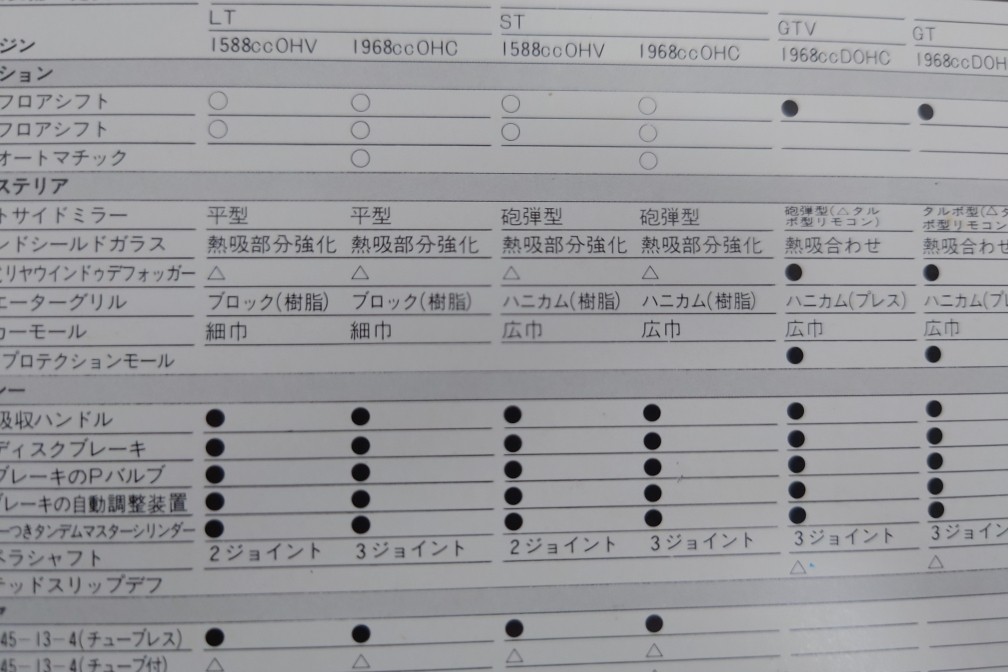 LT ST GTV GT
ジン 1588ccOHV 1968ccOHC 1588ccOHV 1968ccOHC 1968ccDOHC 1968ccDOH
ション
フロアシフト ○ ○ ○ ○ ● ●
フロアシフト ○ ○ ○ ○
オートマチック ○ ○
ステリア
トサイドミラー 平型 平型 砲弾型 砲弾型 砲弾型(△タル タルボ型(△タ
ボ型リモコン) ボ型リモコン
ンドシールドガラス 熱吸部分強化 熱吸部分強化 熱吸部分強化 熱吸部分強化 熱吸合わせ 熱吸合わせ
リヤウインドゥデフォッガー △ △ △ △ ● ●
エーターグリル ブロック(樹脂) ブロック(樹脂) ハニカム(樹脂) ハニカム(樹脂) ハニカム(プレス) ハニカム(プ
カーモール 細巾 細巾 広巾 広巾 広巾 広巾
プロテクションモール ● ●
ー
吸収ハンドル ● ● ● ● ● ●
ディスクブレーキ ● ● ● ● ● ●
ブレーキのPバルブ ● ● ● ● ● ●
ブレーキの自動調整装置 ● ● ● ● ● ●
ーつきタンデムマスターシリンダー ● ● ● ● ● ●
ペラシャフト 2ジョイント 3ジョイント 2ジョイント 3ジョイント 3ジョイント 3ジョイン
テッドスリップデフ △ △
45-13-4(チューブレス) ● ● ● ●
45-13-4(チューブ付) △ △ △ △